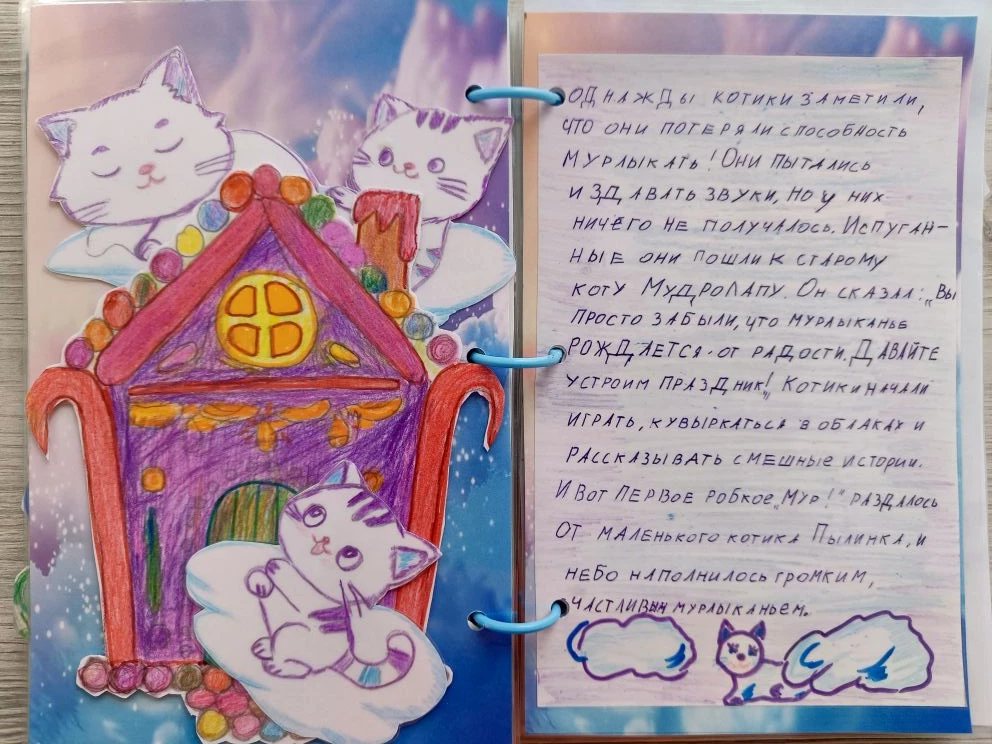 Однажды котики заметили,
что они потеряли способность
мурлыкать! Они пытались
издавать звуки, но у них
ничего не получалось. Испуган-
ные они пошли к старому
коту Мудролапу. Он сказал: „Вы
просто забыли, что мурлыканье
рождается от радости. Давайте
устроим праздник!" Котики начали
играть, кувыркаться в облаках и
рассказывать смешные истории.
И вот первое робкое „Мур!" раздалось
от маленького котика Пылинка, и
небо наполнилось громким,
счастливым мурлыканьем.